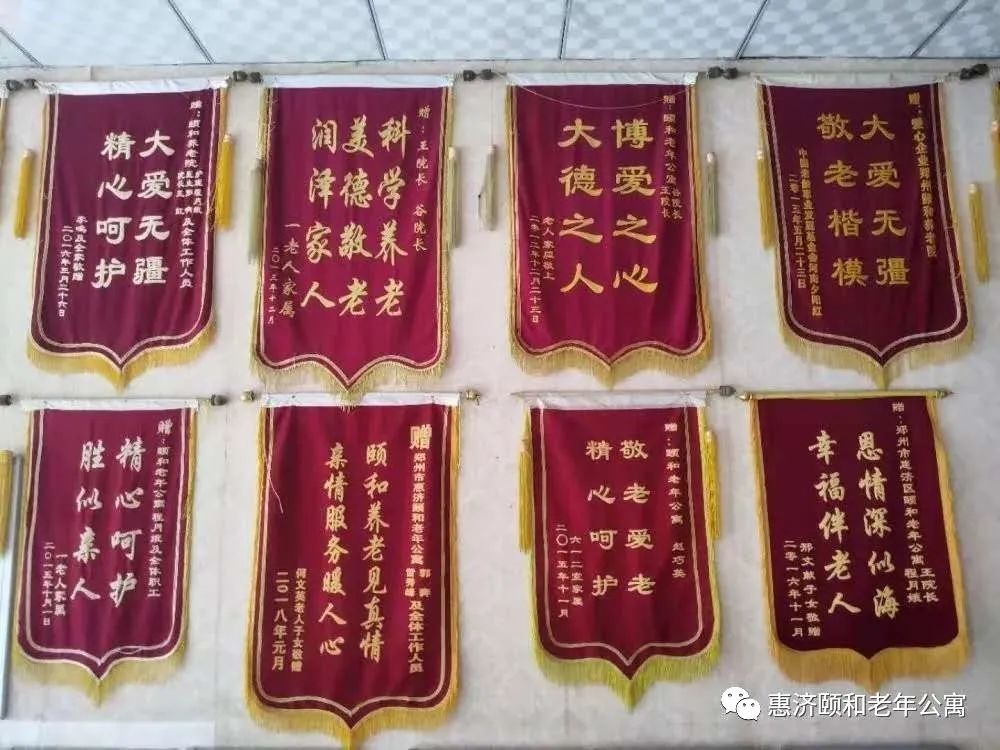 赠：颐和养老院
及全体工作人员
大爱无疆
精心呵护
李鸣及全家敬赠
二〇一六年三月二十六日
赠：王院长 谷院长
科学养老
美德敬老
润泽家人
一老人家属
二〇一五年十二月
赠：颐和老年公寓
谷院长
王院长
博爱之心
大德之人
老人家庭敬上
二零一二年十二月二十三日
赠：爱心企业郑州颐和养老院
大爱无疆
敬老楷模
中国老龄事业发展基金会河南夕阳红
二零一三年五月二十三日
赠：颐和老年公寓程月娥及全体职工
精心呵护
胜似亲人
一老人家属
二〇一五年十月一日
赠
郑州市惠济颐和老年公寓
及全体工作人员
颐和养老见真情
亲情服务暖人心
何文英老人子女敬赠
二〇一八年元月
赠：颐和老年公寓 赵巧英
敬老爱老
精心呵护
六一二室家属
二〇一五年十一月
赠：郑州市惠济区颐和老年公寓
王院长
程月娥
恩情深似海
幸福伴老人
郑文献子女敬赠
二零一六年十一月
惠济颐和老年公寓